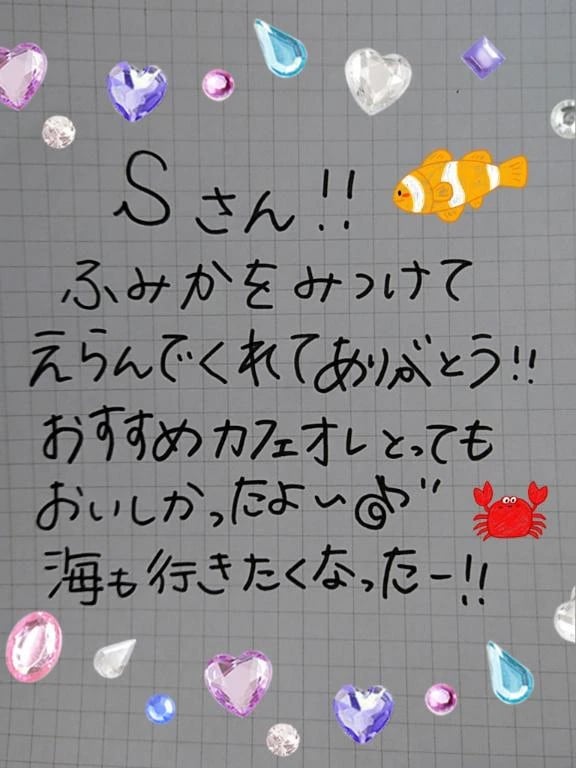 Sさん!!
ふみかをみつけて
えらんでくれてありがとう!!
おすすめカフェオレとっても
おいしかったよ〜@が"
海も行きたくなったー!!